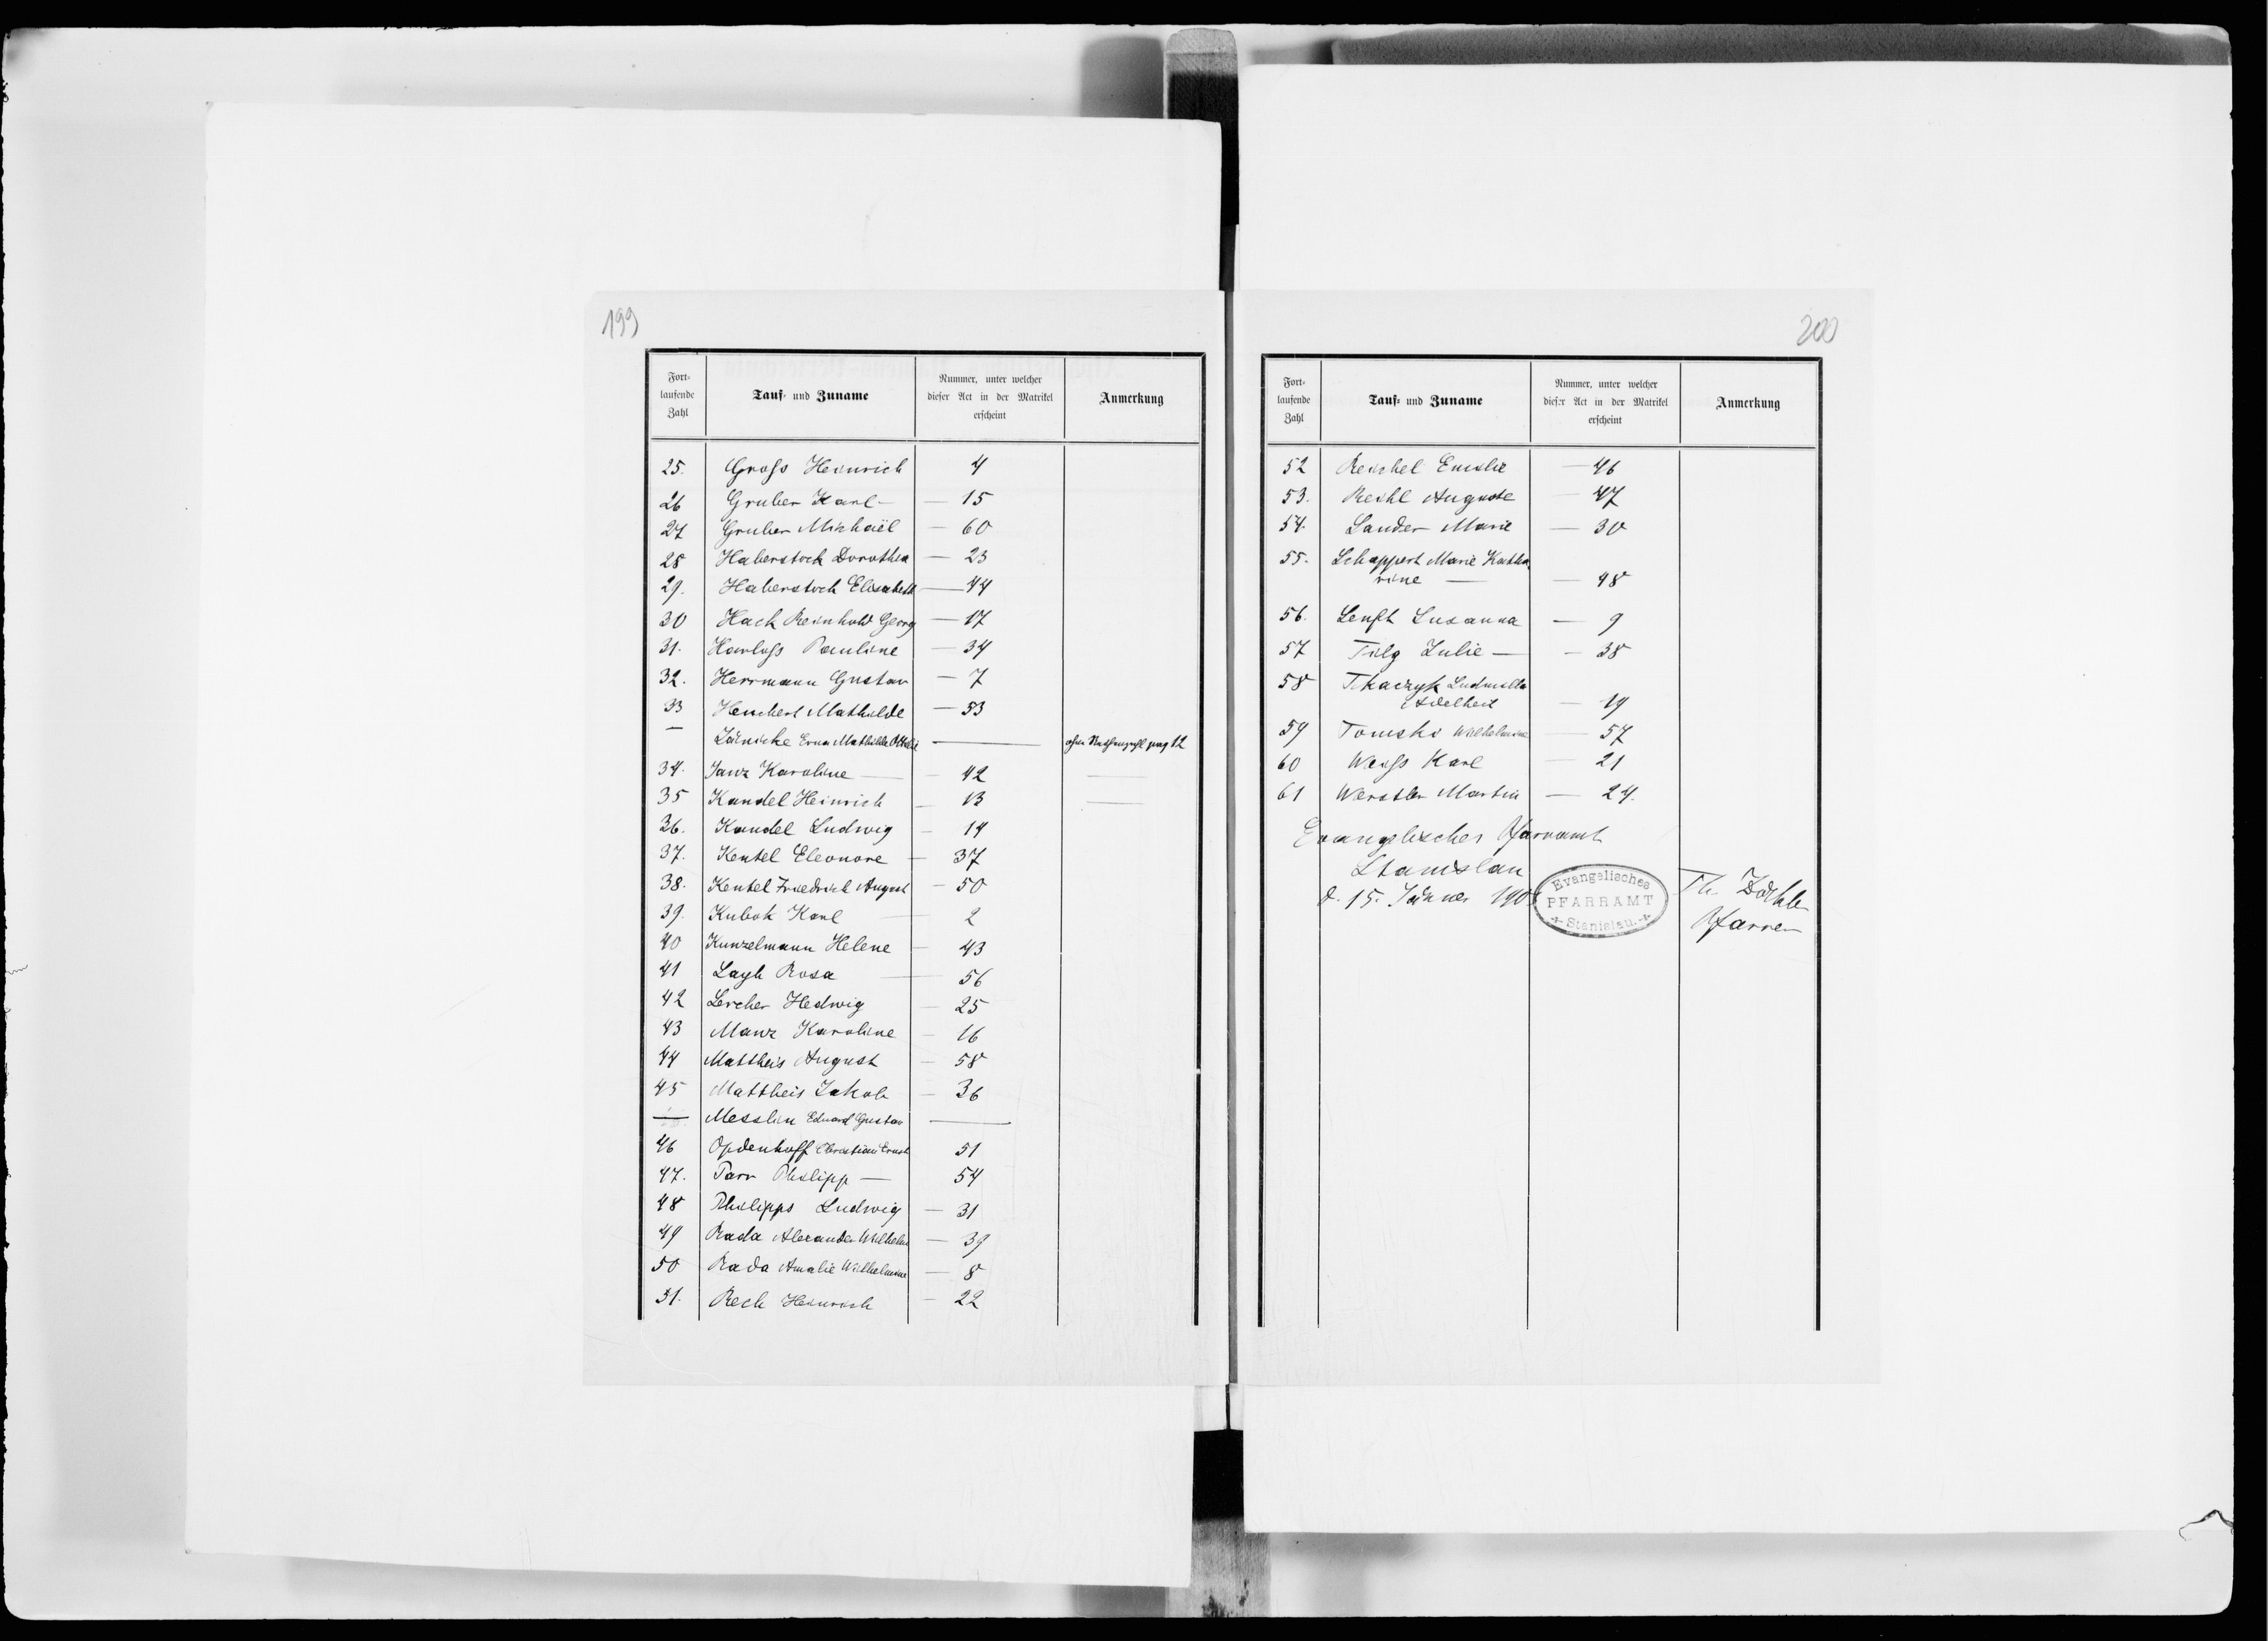 199
Fort-
laufende
Zahl
Tauf- und Zuname
Nummer, unter welcher
dieser Act in der Matrikel
erscheint
Anmerkung
25. Gross Heinrich 4
26 Gruber Karl — 15
27 Gruber Michaël — 60
28 Haberstock Dorothea — 23
29. Haberstock Elisabeth — 44
30 Hack Reinhold Georg — 17
31. Harloss Pauline — 34
32. Herrmann Gustav — 7
33 Heuchert Mathilde — 53
— Jänicke Erna Mathilde Ottilie — pag 12
34. Janz Karoline — 42 —
35 Kandel Heinrich — 13 —
36. Kandel Ludwig — 14
37. Kentel Eleonore — 37
38. Kentel Friedrich August — 50
39. Kubok Karl — 2
40 Kunzelmann Helene — 43
41 Layh Rosa — 56
42 Lercher Hedwig — 25
43 Manz Karoline — 16
44 Mattheis August — 58
45 Mattheis Jakob — 36
— Messlin Eduard Gustav —
46 Opdenhoff Christian Ernst 51
47. Parr Philipp — 54
48 Philipps Ludwig — 31
49 Rada Alexander Wilhelm — 39
50 Rada Amalie Wilhelmine — 8
51. Rech Heinrich — 22
200
Fort-
laufende
Zahl
Tauf- und Zuname
Nummer, unter welcher
dieser Act in der Matrikel
erscheint
Anmerkung
52 Reichel Emilie — 46
53. Reihl Auguste — 47
54. Sander Marie — 30
55. Schappert Marie Katha
rine — 48
56. Senft Susanna — 9
57 Tilg Julie — 38
58 Tkaczyk Ludmilla
Adelheit — 19
59 Tomsko Wilhelmine — 57
60 Weiss Karl — 21
61 Werstler Martin — 24.
Evangelisches Pfarramt
Stanislau
d. 15. Jänner 190
Evangelisches
PFARRAMT
Stanislau.
Th. Zöckler
Pfarrer